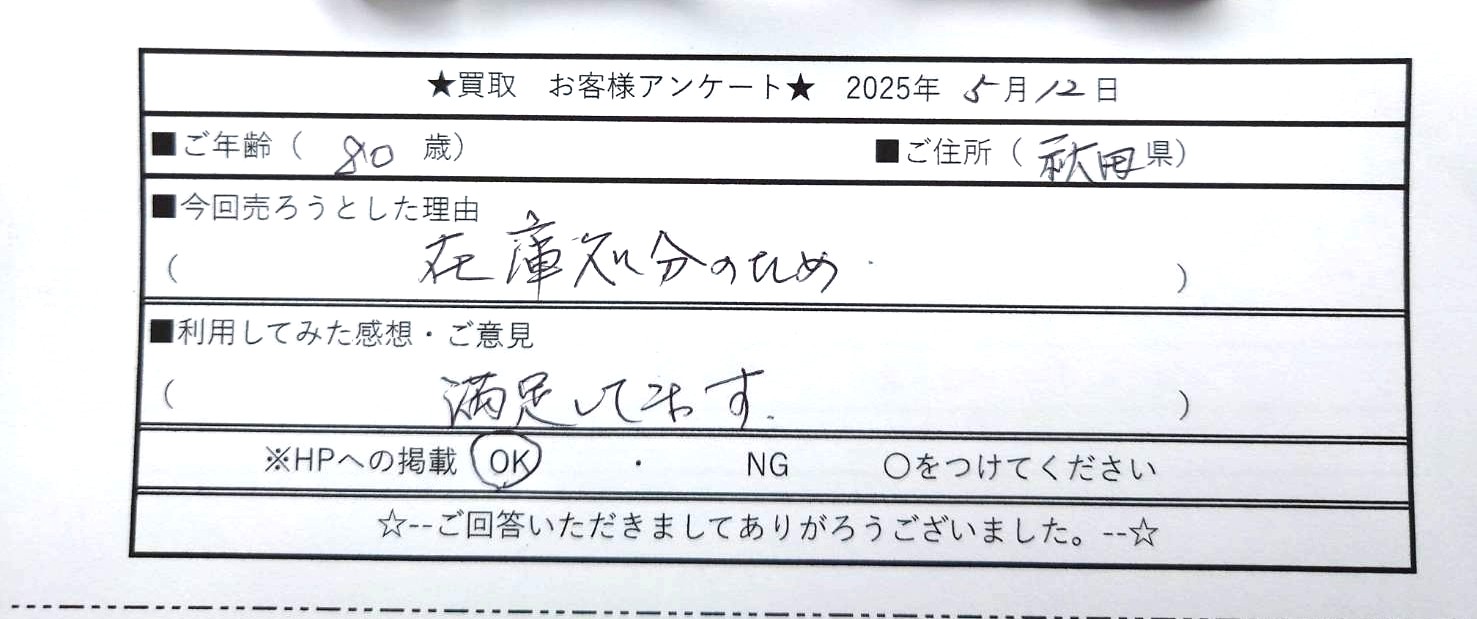 ★買取 お客様アンケート★ 2025年 5月12日
■ご年齢（ 80 歳） ■ご住所（ 秋田県）
■今回売ろうとした理由
（ 在庫処分のため ）
■利用してみた感想・ご意見
（ 満足してます. ）
※HPへの掲載 OK ・ NG 〇をつけてください
☆--ご回答いただきましてありがろうございました。--☆